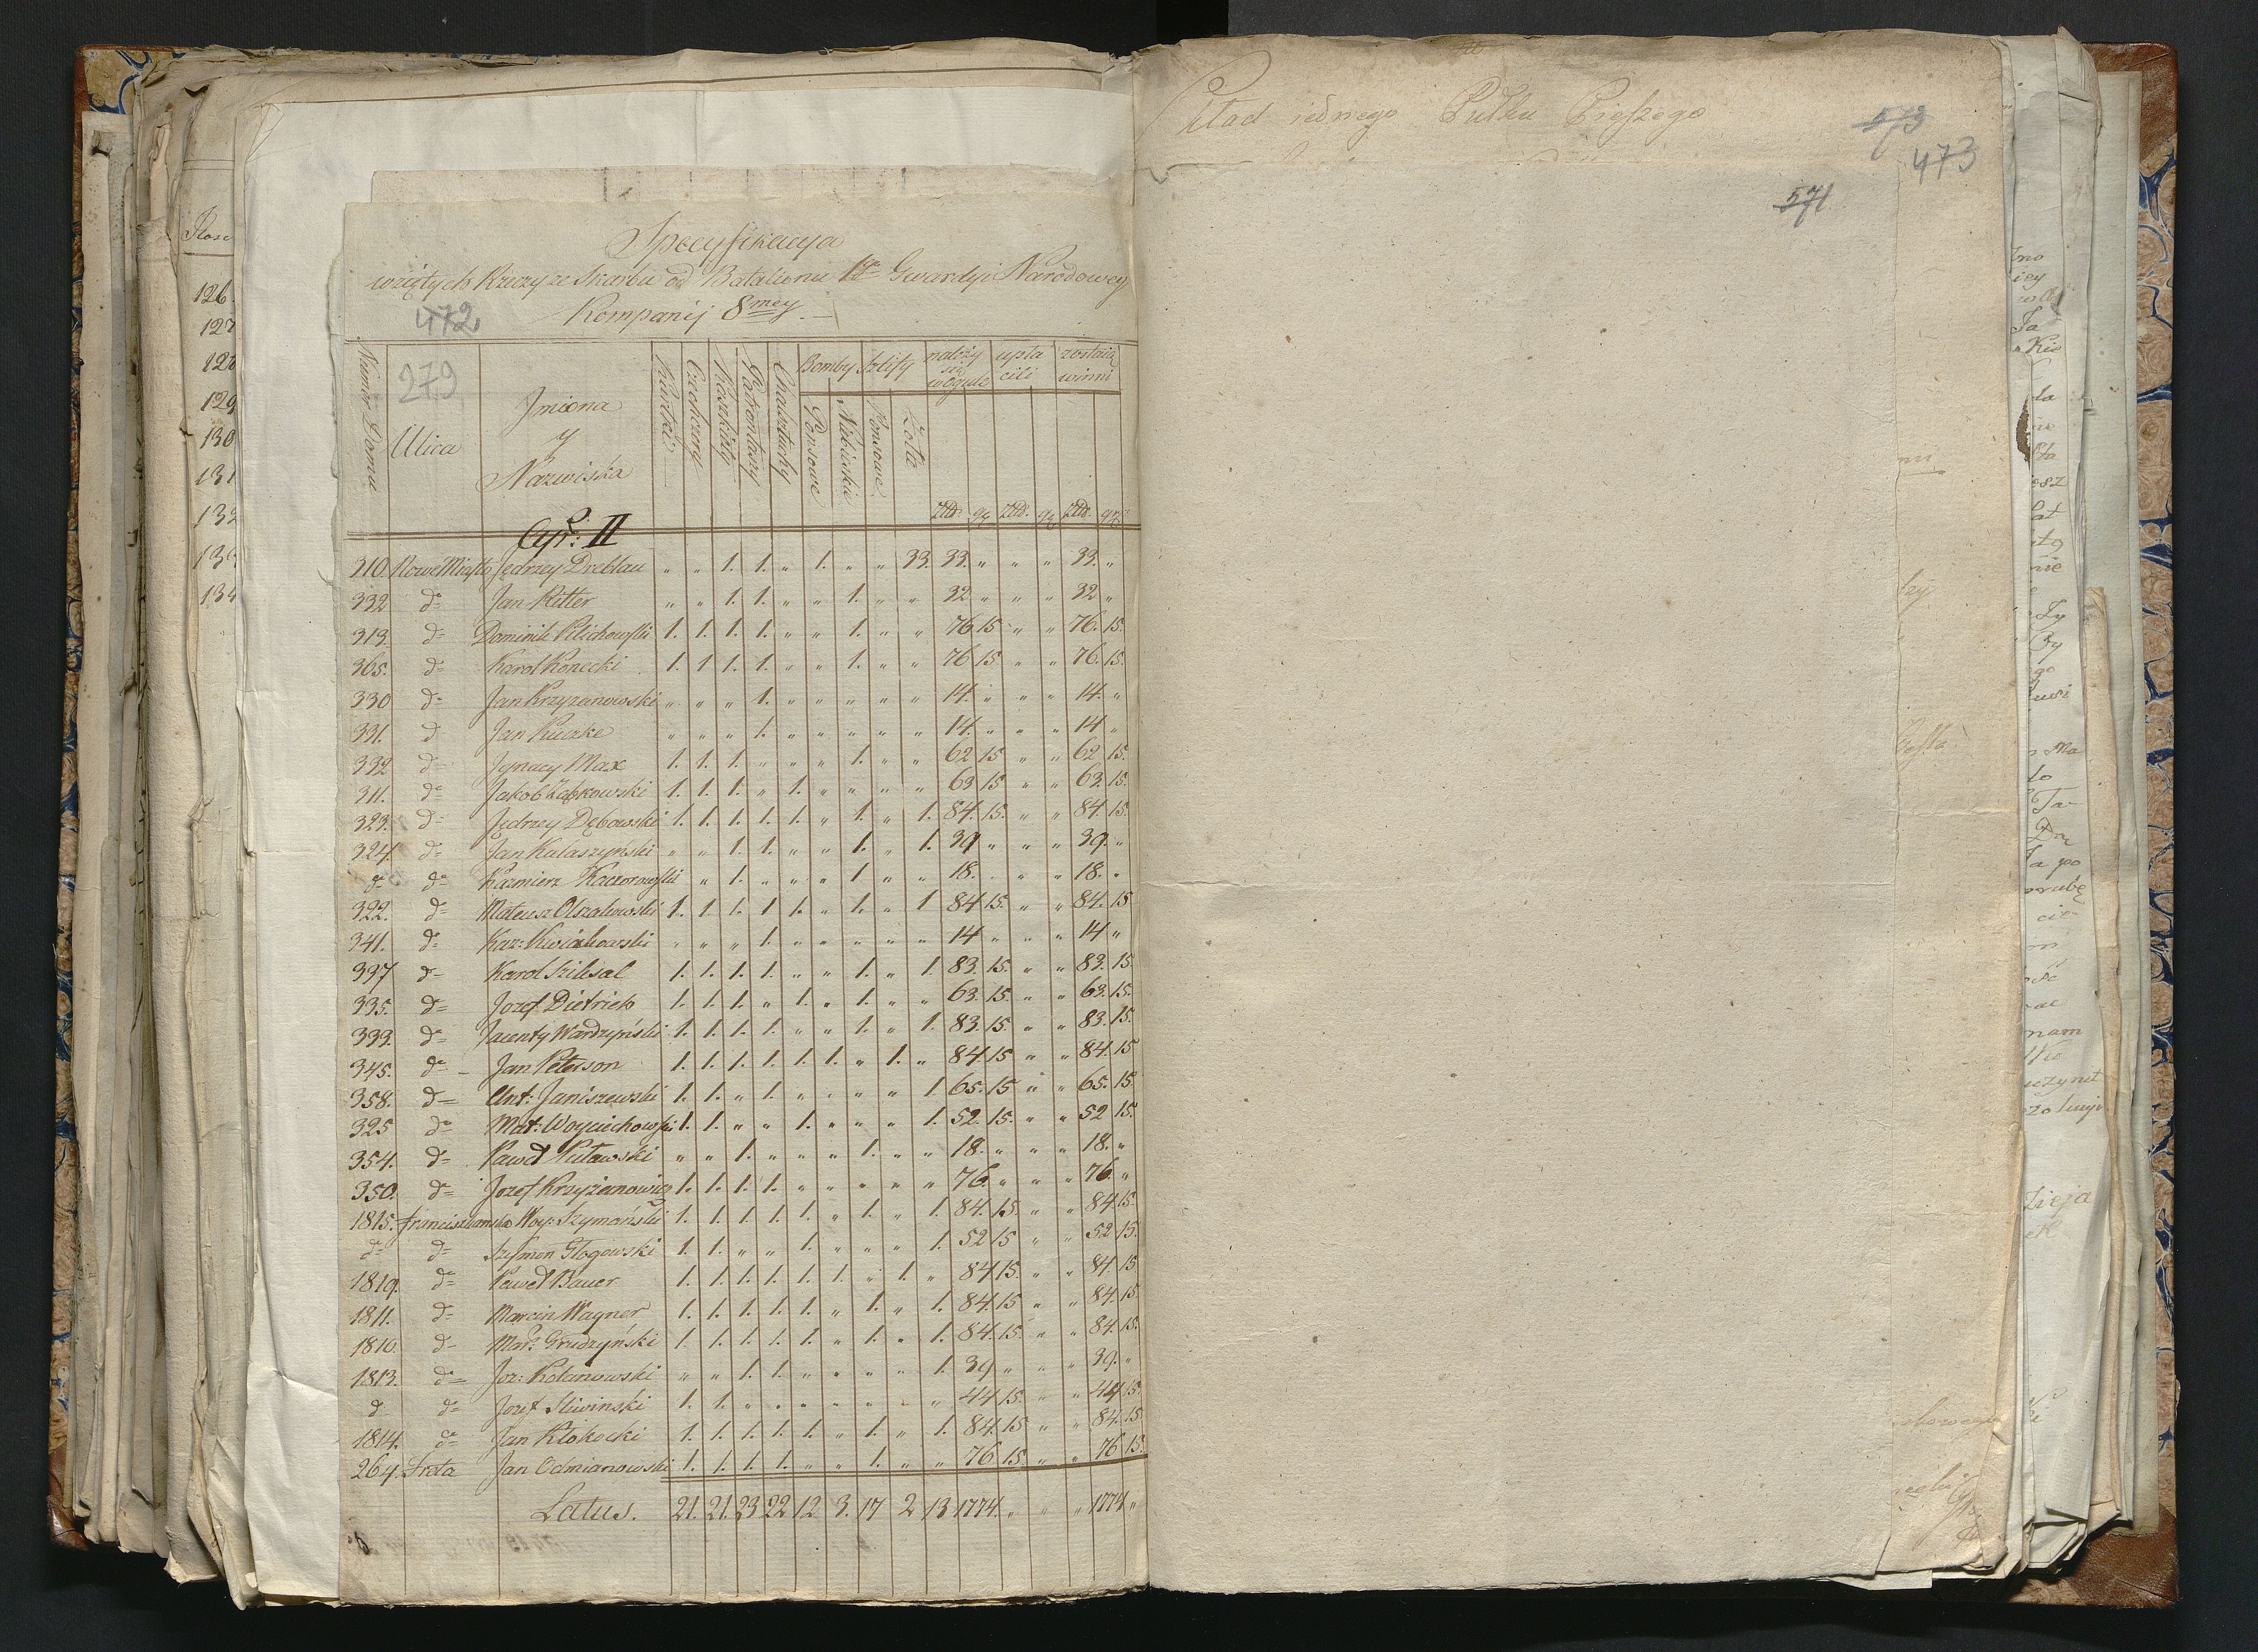 Specyfikacya
wziętych Rzeczy ze Skarbu od Batalionu 1go Gwardyi Narodowey
Kompanij 8mey. —
472
279
Numer Domu | Ulica | Jmiona y Nazwiska | Kurtki | Czechczery | Kaszkiety | Patrontasze | Chalsztuchy | Bomby: Ponsowe | Niebieskie | Szlify: Ponsowe | Żołte | należy się wogule Złłd. gr. | upłacili Złłd. gr. | zostaią winni Złłd. gr.
Cyr: II
310 Nowe Miasto Jędrzey Dreblau " " 1. 1. " 1. " " 33. 33. " " " 33. "
332 do Jan Ritter " " 1. 1. " " 1. " " 32 " " " 32 "
313. do Dominik Klichowski 1. 1. 1. 1. " " 1. " " 76 15 " " 76. 15.
365. do Karol Konecki 1. 1 1. 1. " " 1. " " 76 15 " " 76. 15.
330 do Jan Krzyzanowski " " " 1. " " " " " 14. " " " 14. "
331. d Jan Kuczke " " " 1. " " " " " 14. " " " 14 "
332 d Jgnacy Max 1. 1. 1. " " " 1. " " 62 15 " " 62. 15.
311. do Jakob Ząbkowski 1. 1. 1. " 1. " " " " 63 15 " " 63. 15.
323. do Jędrzey Dębowski 1. 1. 1. 1. 1. " 1. " 1. 84. 15. " " 84. 15.
324. do Jan Kulaszynski " " 1. 1. " " 1. " 1. 39 " " " 39. "
do do Kazmierz Kaczorowski " " 1. " " " 1 " " 18. " " " 18. "
322. do Mateusz Olszakowski 1. 1. 1. 1 1. " 1. " 1 84 15. " " 84. 15
341. do Kaz: Kwiatkowski " " " 1. " " " " " 14 " " " 14 "
337 do Karol Szilesal 1. 1. 1. 1. " " 1. " 1. 83. 15. " " 83. 15
335. do Jozef Dietrich 1. 1. 1. " 1. " 1. " " 63. 15. " " 63. 15.
333. do Jacenty Wardzyński 1. 1. 1. 1. " " 1. " 1. 83. 15. " " 83. 15.
345. do Jan Peterson 1. 1. 1. 1. 1. 1. " 1. " 84. 15 " " 84. 15
358. do Ant: Janiszewski 1. 1. " 1. " " " " 1 65. 15 " " 65. 15.
325 do Mat: Woyciechowski 1. 1. " " 1. " " " 1. 52. 15. " " 52 15.
354. do Paweł Kitowski " " 1. " " " 1. " " 18. " " " 18. "
350. do Jozef Krzyżanowicz 1. 1. 1. 1. " " " " " 76. " " " 76. "
1815. Franciszkanska Woy: Szymański 1. 1. 1. 1. 1. " 1. " 1. 84. 15. " " 84 15.
do do Szymon Głogowski 1. 1. " " 1. " " " 1. 52 15 " " 52 15.
1819. do Paweł Bauer 1. 1. 1. 1. 1. 1. " 1. " 84 15. " " 84 15
1811. do Marcin Wagner 1. 1. 1. 1. 1. " 1. " 1. 84. 15 " " 84. 15.
1810. do Mar: Grudzyński 1. 1. 1. 1. 1. " 1. " 1. 84. 15. " " 84. 15.
1813. do Joz: Kolanowski " " 1. 1. " " " " 1. 39 " " " 39. "
d do Jozef Sliwinski 1. 1. " " " " " " " 44 15. " " 44 15.
1814. do Jan Kłokocki 1. 1. 1. 1. 1. " 1. " 1. 84. 15 " " 84. 15.
264. Freta Jan Odmianowski 1. 1. 1. 1. " " 1. " " 76. 15 " " 76 15.
Latus. 21. 21. 23 22 12 3. 17 2 13 1774. " " " 1774 "
Układ iednego Pułku Pieszego
573
473
571
126.
127
128
129
130
131
132
134